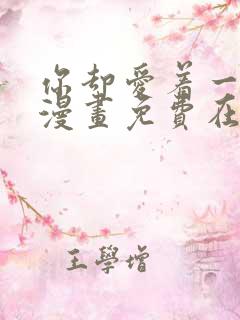 你却愛着一
漫畫免費在
王學增